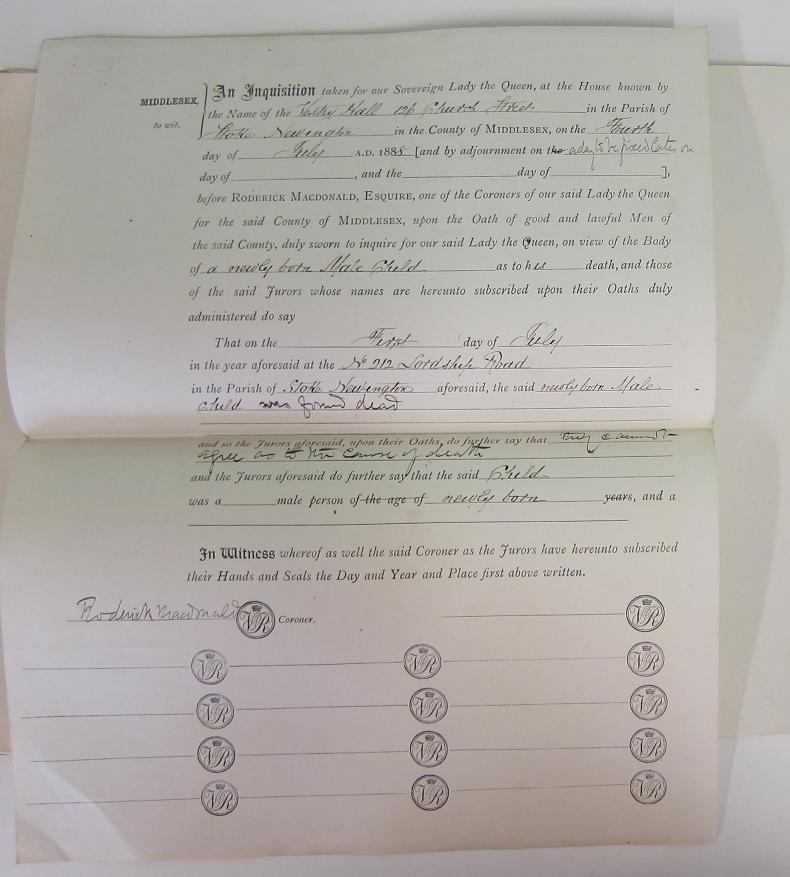 MIDDLESEX, to wit.
An Inquisition taken for our Sovereign Lady the Queen, at the House known by
the Name of the Vestry Hall 126 Church Street in the Parish of
Stoke Newington in the County of MIDDLESEX, on the Fourth
day of July A.D. 1888 [and by adjournment on the a day to be fixed later on
day of , and the day of ],
before RODERICK MACDONALD, ESQUIRE, one of the Coroners of our said Lady the Queen
for the said County of MIDDLESEX, upon the Oath of good and lawful Men of
the said County, duly sworn to inquire for our said Lady the Queen, on view of the Body
of a newly born Male Child as to his death, and those
of the said Jurors whose names are hereunto subscribed upon their Oaths duly
administered do say
That on the First day of July
in the year aforesaid at the No 212 Lordship Road
in the Parish of Stoke Newington aforesaid, the said newly born Male
Child was found dead
and so the Jurors aforesaid, upon their Oaths, do further say that they cannot
agree as to the cause of death
and the Jurors aforesaid do further say that the said Child
was a male person of the age of newly born years, and a
In Witness whereof as well the said Coroner as the Jurors have hereunto subscribed
their Hands and Seals the Day and Year and Place first above written.
Roderick Macdonald VR Coroner. VR
VR VR VR
VR VR VR
VR VR VR
VR VR VR